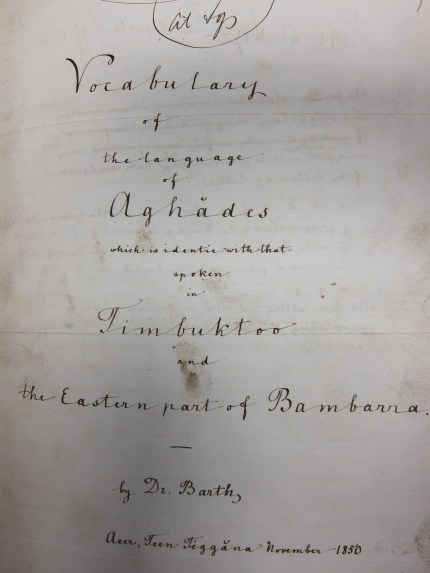 at top
Vocabulary
of
the language
of
Aghādes
which is identic with that
spoken
in
Timbuktoo
and
the Eastern part of Bambarra.
by Dr. Barth,
Aeer, Teen Teggāna November 1850